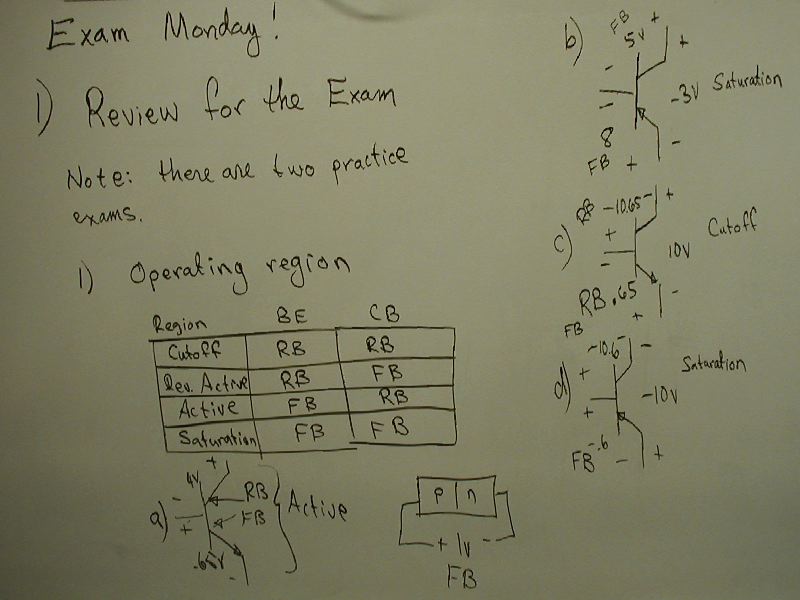 Exam Monday!
1) Review for the Exam
Note: there are two practice
exams.
1) Operating region
Region BE CB
Cutoff RB RB
Rev. Active RB FB
Active FB RB
Saturation FB FB
a) 4V + - + .65V -
RB
FB
Active
p n
+ 1V -
FB
b) FB 5V + +
- -
-3V Saturation
8 -
FB +
c) RB -10.65 - +
+ -
10V Cutoff
RB .65 -
+
d) FB -10.6 - -
+ +
-10V Saturation
FB -.6 - +